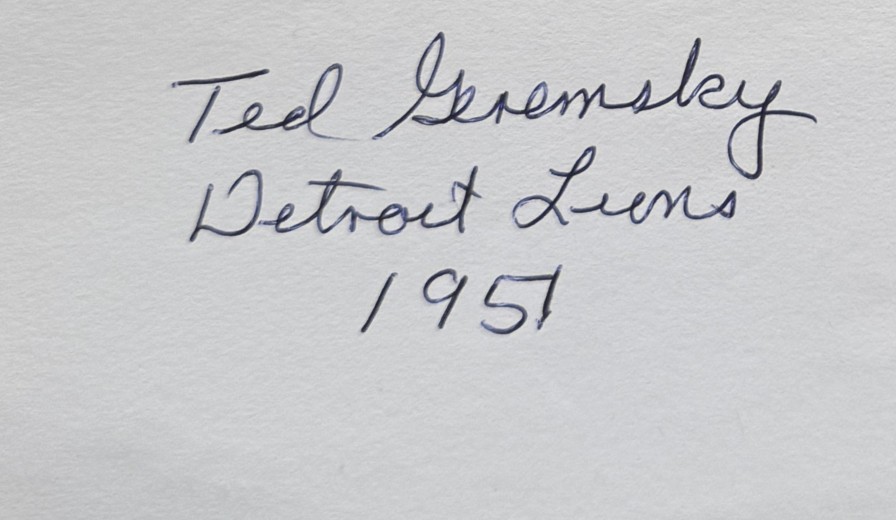 Ted Geremsky
Detroit Lions
1951